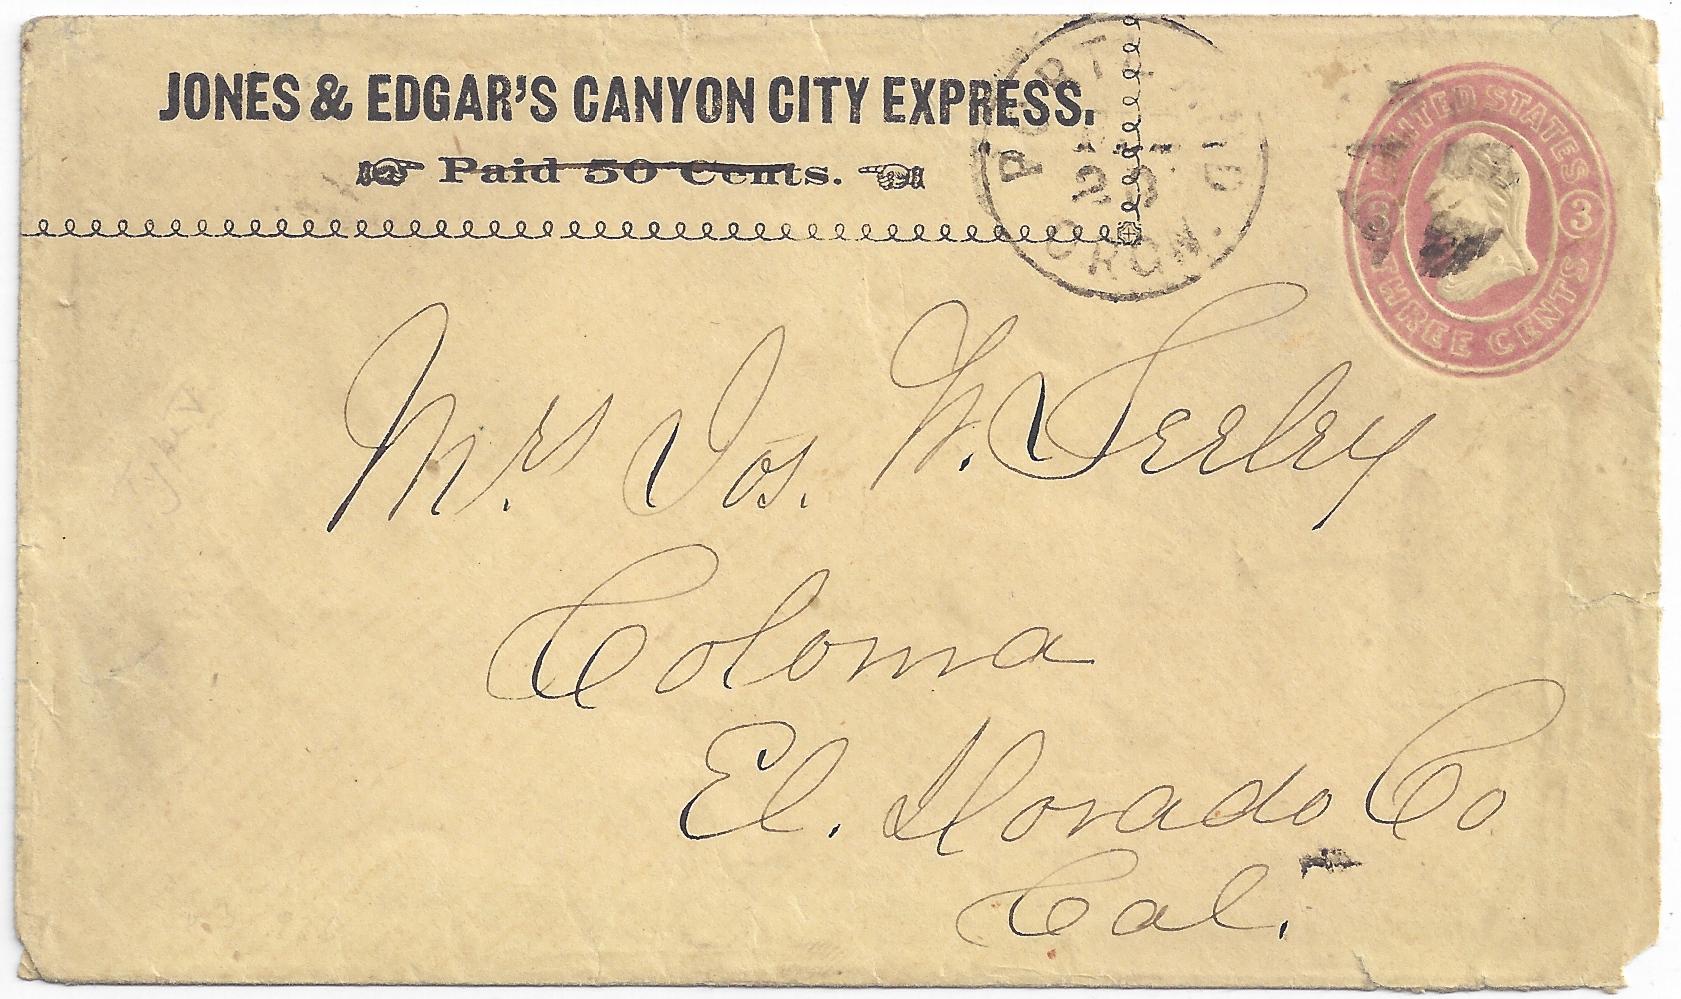 JONES & EDGAR'S CANYON CITY EXPRESS.
Paid 50 Cents.
PORTLAND
ORGN.
UNITED STATES
3 3
THREE CENTS
Mrs. Jos. W. Seeley
Coloma
El. Dorado Co
Cal.